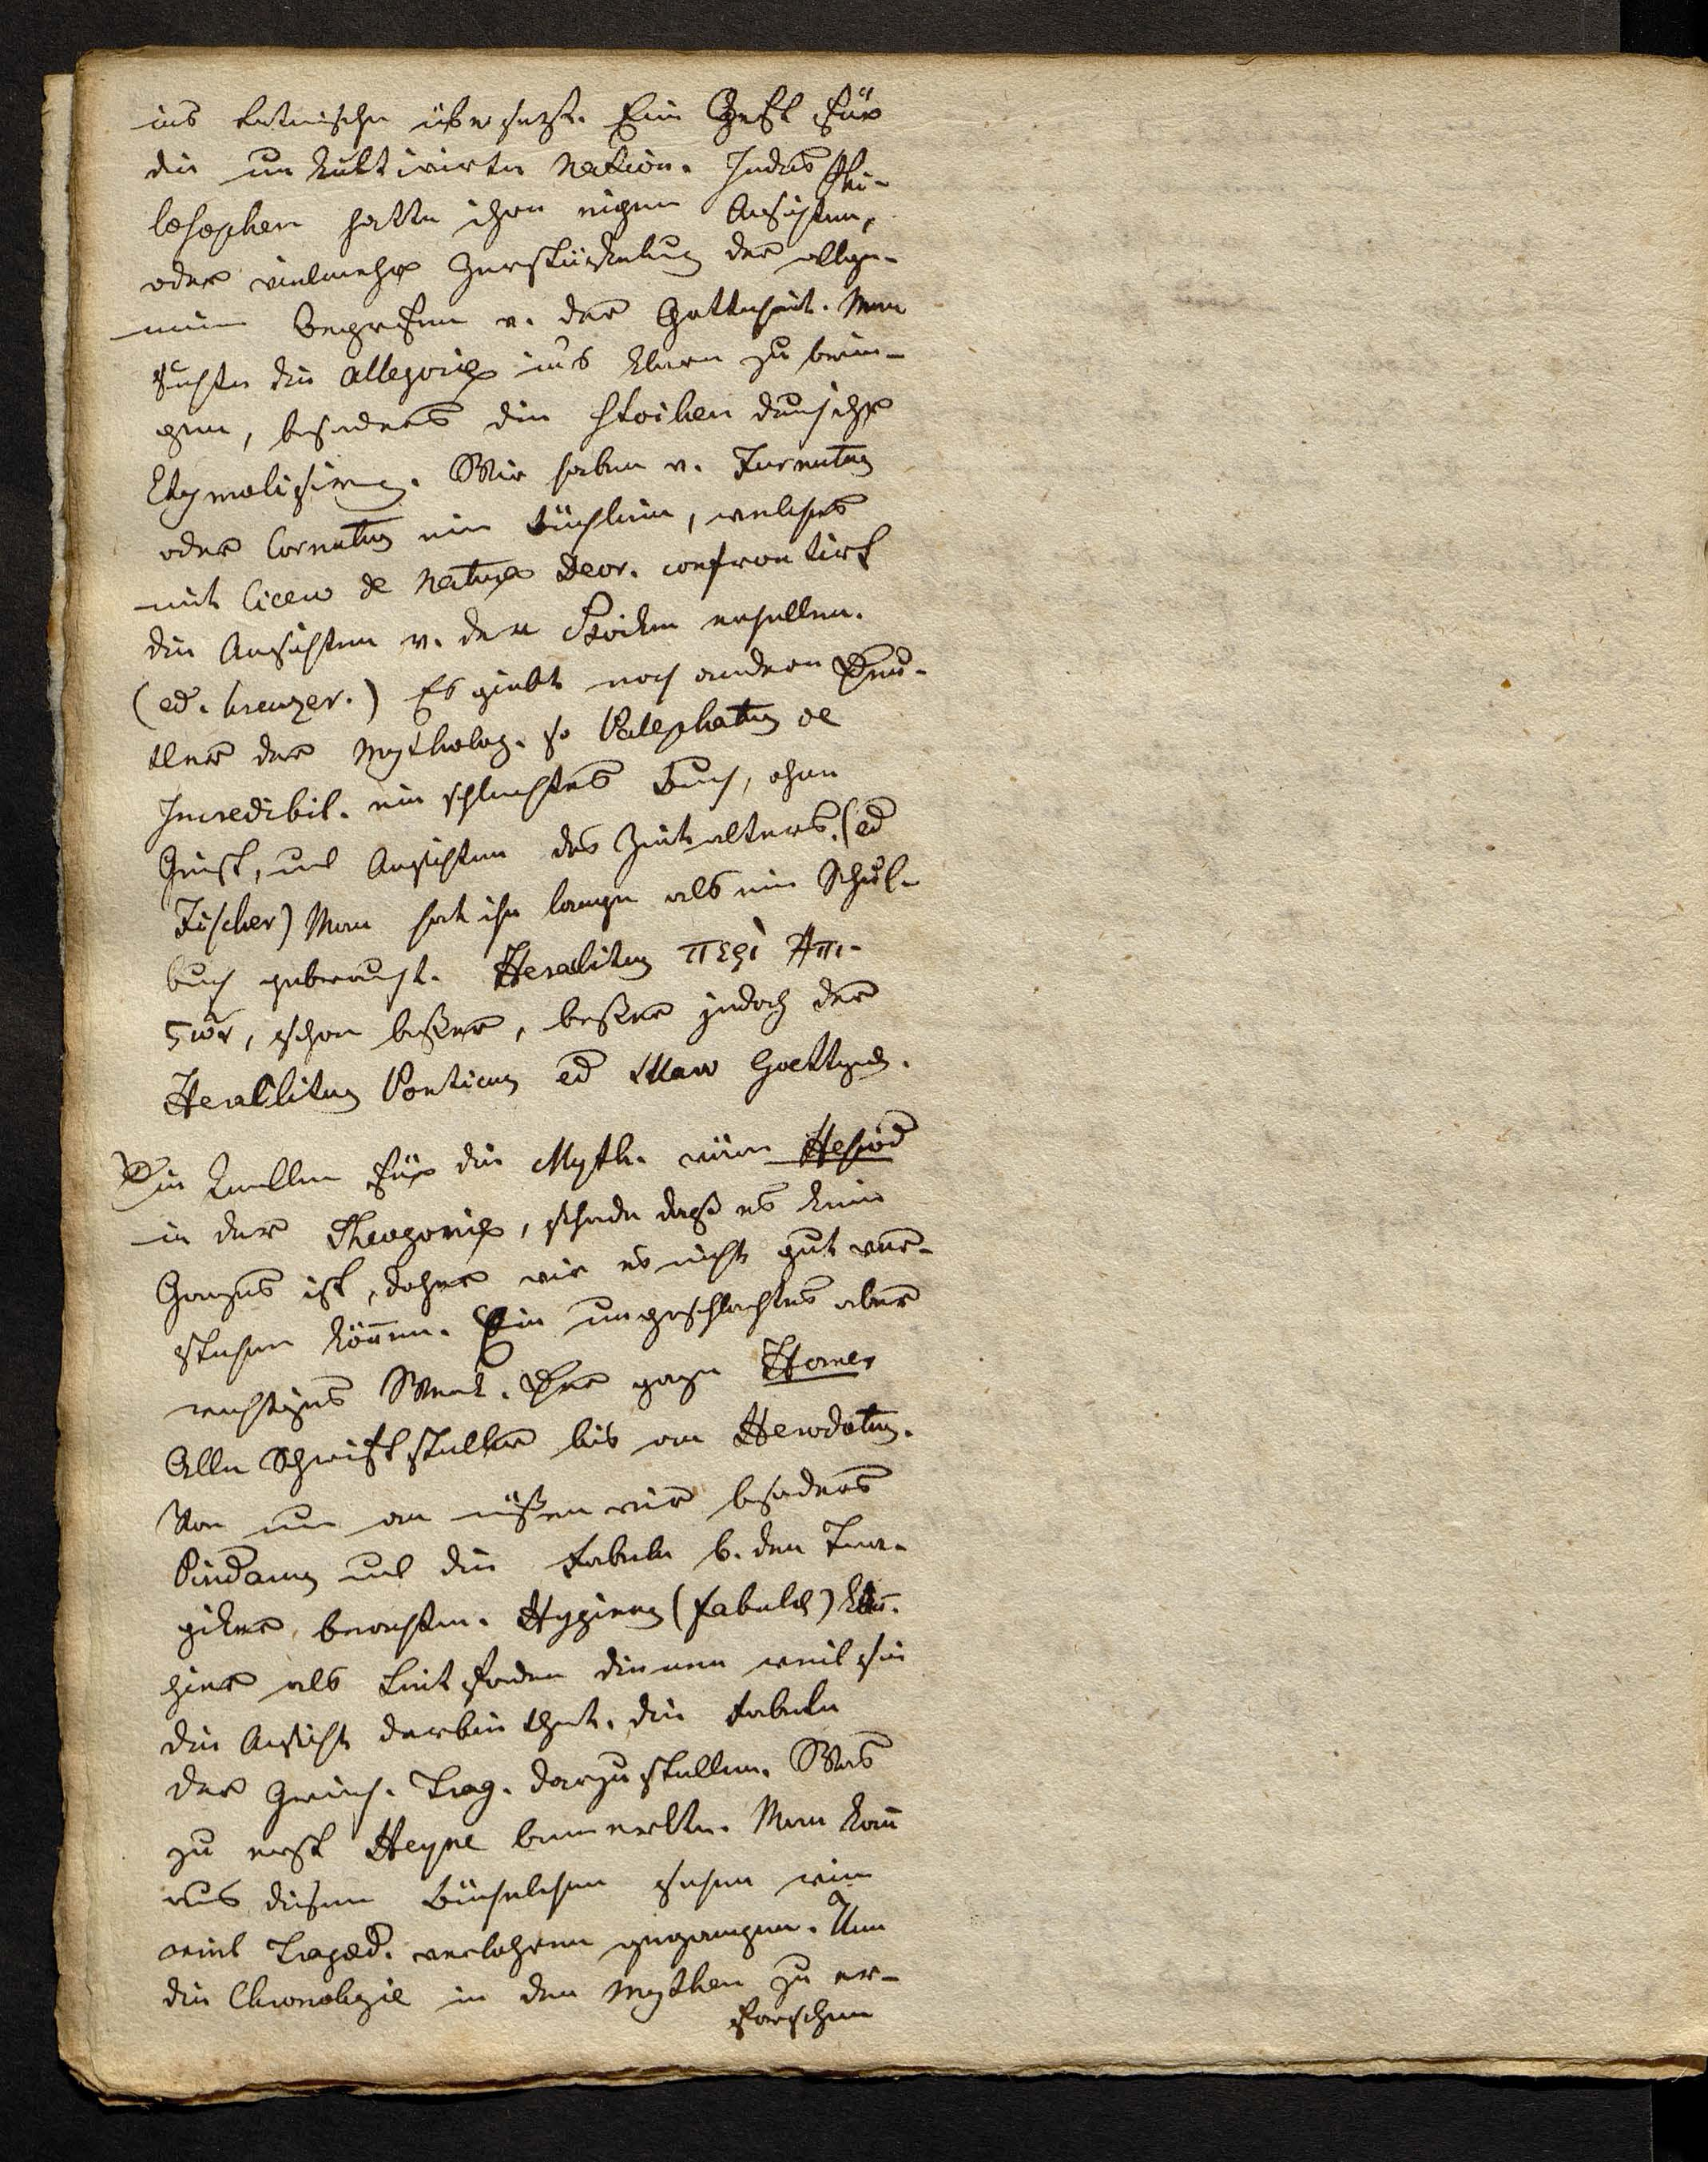 ins Lateinische übersetzt. Ein Gift für
die unkultivirte Nation. Jedes Phi-
losophen hatte ihre eigene Ansichten,
oder vielmehr Zerstückelung der allge-
meinen Begriffen v. der Gottheit. Man
suchte die Allegorie ins klare zu brin-
gen, besonders die Stoiken durch
Etymolisirung. Wir haben v. Furnutus
oder Cornutus ein Büchlein, welches
mit Cicero de Natura Deor. confrontirt
die Ansichten v. den Stoiken erhellen.
(ed. Kreuzer.) Es giebt noch andere Deu-
tler der Mytholog. so Palephatus de
Incredibil. ein schlechtes Buch, ohne
Geist, und Ansichten des Zeitalters. (ed
Fischer) Man hat ihn lange als ein Schul-
buch gebraucht. Heraclitus περὶ Απι-
ςων, schon beßer, beßer jedoch der
Heraklitus Ponticus ed
Die Quellen für die Myth. wären Hesiod
in der Theogonie, schade daß es kein
Ganzes ist, daher wir es nicht gut ver-
stehen können. Ein ungeschlachtes aber
wichtiges Werk. Homer
Alle Schriftsteller bis on Herodotus.
Von nun an müßen wir besonders
Pindarus und die Fabeln b. den Tra-
giker beachten. Hyginus (Fabulae)
hier als Leitfaden dienen weil sie
die Ansicht darbiethet, die Fabeln
der Griech. Trag. darzustellen. Was
zu erst Heyne bemerkte. Man kann
aus diesem Büchelchen sehen wie
viel Tragoed. verlohren gegangen. Um
die Chronologie in den Mythen zu er-
forschen